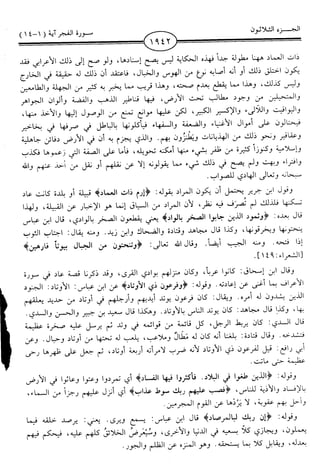 الجـــزء الثلاثـــون
١٩٤٢
سورة الفجر آية (١-١٤)
ذات العماد ههنا مطولة جداً فهذه الحكاية ليس يصح إسنادها، ولو صح إلى ذلك الأعرابي فقد
يكون اختلق ذلك أو أنه أصابه نوع من الهوس والخبال، فاعتقد أن ذلك له حقيقة في الخارج
وليس كذلك، وهذا مما يقطع بعدم صحته، وهذا قريب مما يخبر به كثير من الجهلة والطامعين
والمتحيلين من وجود مطالب تحت الأرض، فيها قناطير الذهب والفضة وألوان الجواهر
واليواقيت واللآلىء والإكسير الكبير، لكن عليها موانع تمنع من الوصول إليها والأخذ منها،
فيحتالون على أموال الأغنياء والضعفة والسفهاء، فيأكلونها بالباطل في صرفها في بخاخير
وعقاقير ونحو ذلك من الهذيانات ويَطْنُزُون بهم. والذي يجزم به أن في الأرض دفائن جاهلية
وإسلامية وكنوزاً كثيرة من ظفر بشيء منها أمكنه تحويله، فأما على الصفة التي زعموها فكذب
وافتراء وبهت ولم يصح في ذلك شيء مما يقولونه إلا عن نقلهم أو نقل من أخذ عنهم والله
سبحانه وتعالى الهادي للصواب.
وقول ابن جرير يحتمل أن يكون المراد بقوله: ﴿إرم ذات العماد﴾ قبيلة أو بلدة كانت عاد
تسكنها فلذلك لم تصرف فيه نظر، لأن المراد من السياق إنما هو الإخبار عن القبيلة، ولهذا
قال بعده: ﴿وثمود الذين جابوا الصخر بالواد﴾ يعني يقطعون الصخر بالوادي، قال ابن عباس
ينحتونها ويخرقونها، وكذا قال مجاهد وقتادة والضحاك وابن زيد. ومنه يقال: اجتاب الثوب
إذا فتحه. ومنه الجيب أيضاً. وقال الله تعالى: ﴿وتنحتون من الجبال بيوتاً فارهين﴾
[الشعراء: ١٤٩].
وقال ابن إسحاق: كانوا عرباً، وكان منزلهم بوادي القرى، وقد ذكرنا قصة عاد في سورة
الأعراف بما أغنى عن إعادته. وقوله: ﴿وفرعون ذي الأوتاد﴾ عن ابن عباس: الأوتاد: الجنود
الذين يشدون له أمره. ويقال: كان فرعون يوتد أيديهم وأرجلهم في أوتاد من حديد يعلقهم
بها، وكذا قال مجاهد: كان يوتد الناس بالأوتاد. وهكذا قال سعيد بن جبير والحسن والسدي.
قال السدي: كان يربط الرجل، كل قائمة من قوائمه في وتد ثم يرسل عليه صخرة عظيمة
فتشدخه. وقال قتادة: بلغنا أنه كان له مَطَالّ وملاعب، يلعب له تحتها من أوتاد وحبال. وعن
أبي رافع: قيل لفرعون ذي الأوتاد لأنه ضرب لامرأته أربعة أوتاد، ثم جعل على ظهرها رحى
عظيمة حتى ماتت.
وقوله: ﴿الذين طغوا في البلاد. فأكثروا فيها الفساد﴾ أي تمردوا وعتوا وعاثوا في الأرض
بالإفساد والأذية للناس. ﴿فصب عليهم ربك سوط عذاب﴾ أي أنزل عليهم رجزاً من السماء،
وأحل بهم عقوبة، لا يَرُدّها عن القوم المجرمين.
وقوله: ﴿إن ربك لبالمرصاد﴾ قال ابن عباس: يسمع ويرى. يعني: يرصد خلقه فيما
يعملون، ويجازي كلاً بسعيه في الدنيا والأخرى، وسيُعْرَضُ الخلائقُ كلهم عليه، فيحكم فيهم
بعدله، ويقابل كلاً بما يستحقه. وهو المنزه عن الظلم والجور.